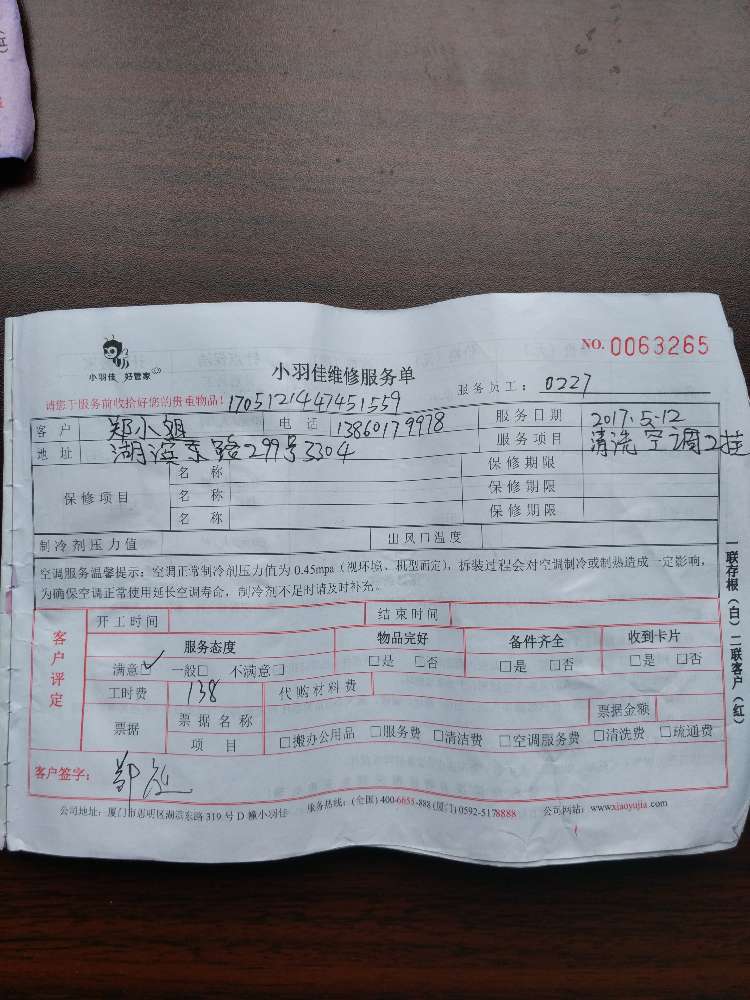 小羽佳 好管家
小羽佳维修服务单
NO. 0063265
服务员工: 0227
请您于服务前收拾好您的贵重物品! 1705121447451559
客户 郑小姐 电话 13860179978 服务日期 2017.5.12
地址 湖滨东路299号3304 服务项目 清洗空调2挂
保修项目
名称 保修期限
名称 保修期限
名称 保修期限
制冷剂压力值 出风口温度
空调服务温馨提示：空调正常制冷剂压力值为 0.45mpa（视环境、机型而定），拆装过程会对空调制冷或制热造成一定影响，
为确保空调正常使用延长空调寿命，制冷剂不足时请及时补充。
客户评定
开工时间 结束时间
服务态度 物品完好 备件齐全 收到卡片
满意☑ 一般□ 不满意□ □是 □否 □是 □否 □是 □否
工时费 138 代购材料费
票据 票据名称 票据金额
项目 □搬办公用品 □服务费 □清洁费 □空调服务费 □清洗费 □疏通费
客户签字： 郑
公司地址：厦门市思明区湖滨东路 319 号 D 幢小羽佳 服务热线：(全国) 400-6655-888 (厦门) 0592-5178888 公司网站：www.xiaoyujia.com
一联存根（白）二联客户（红）